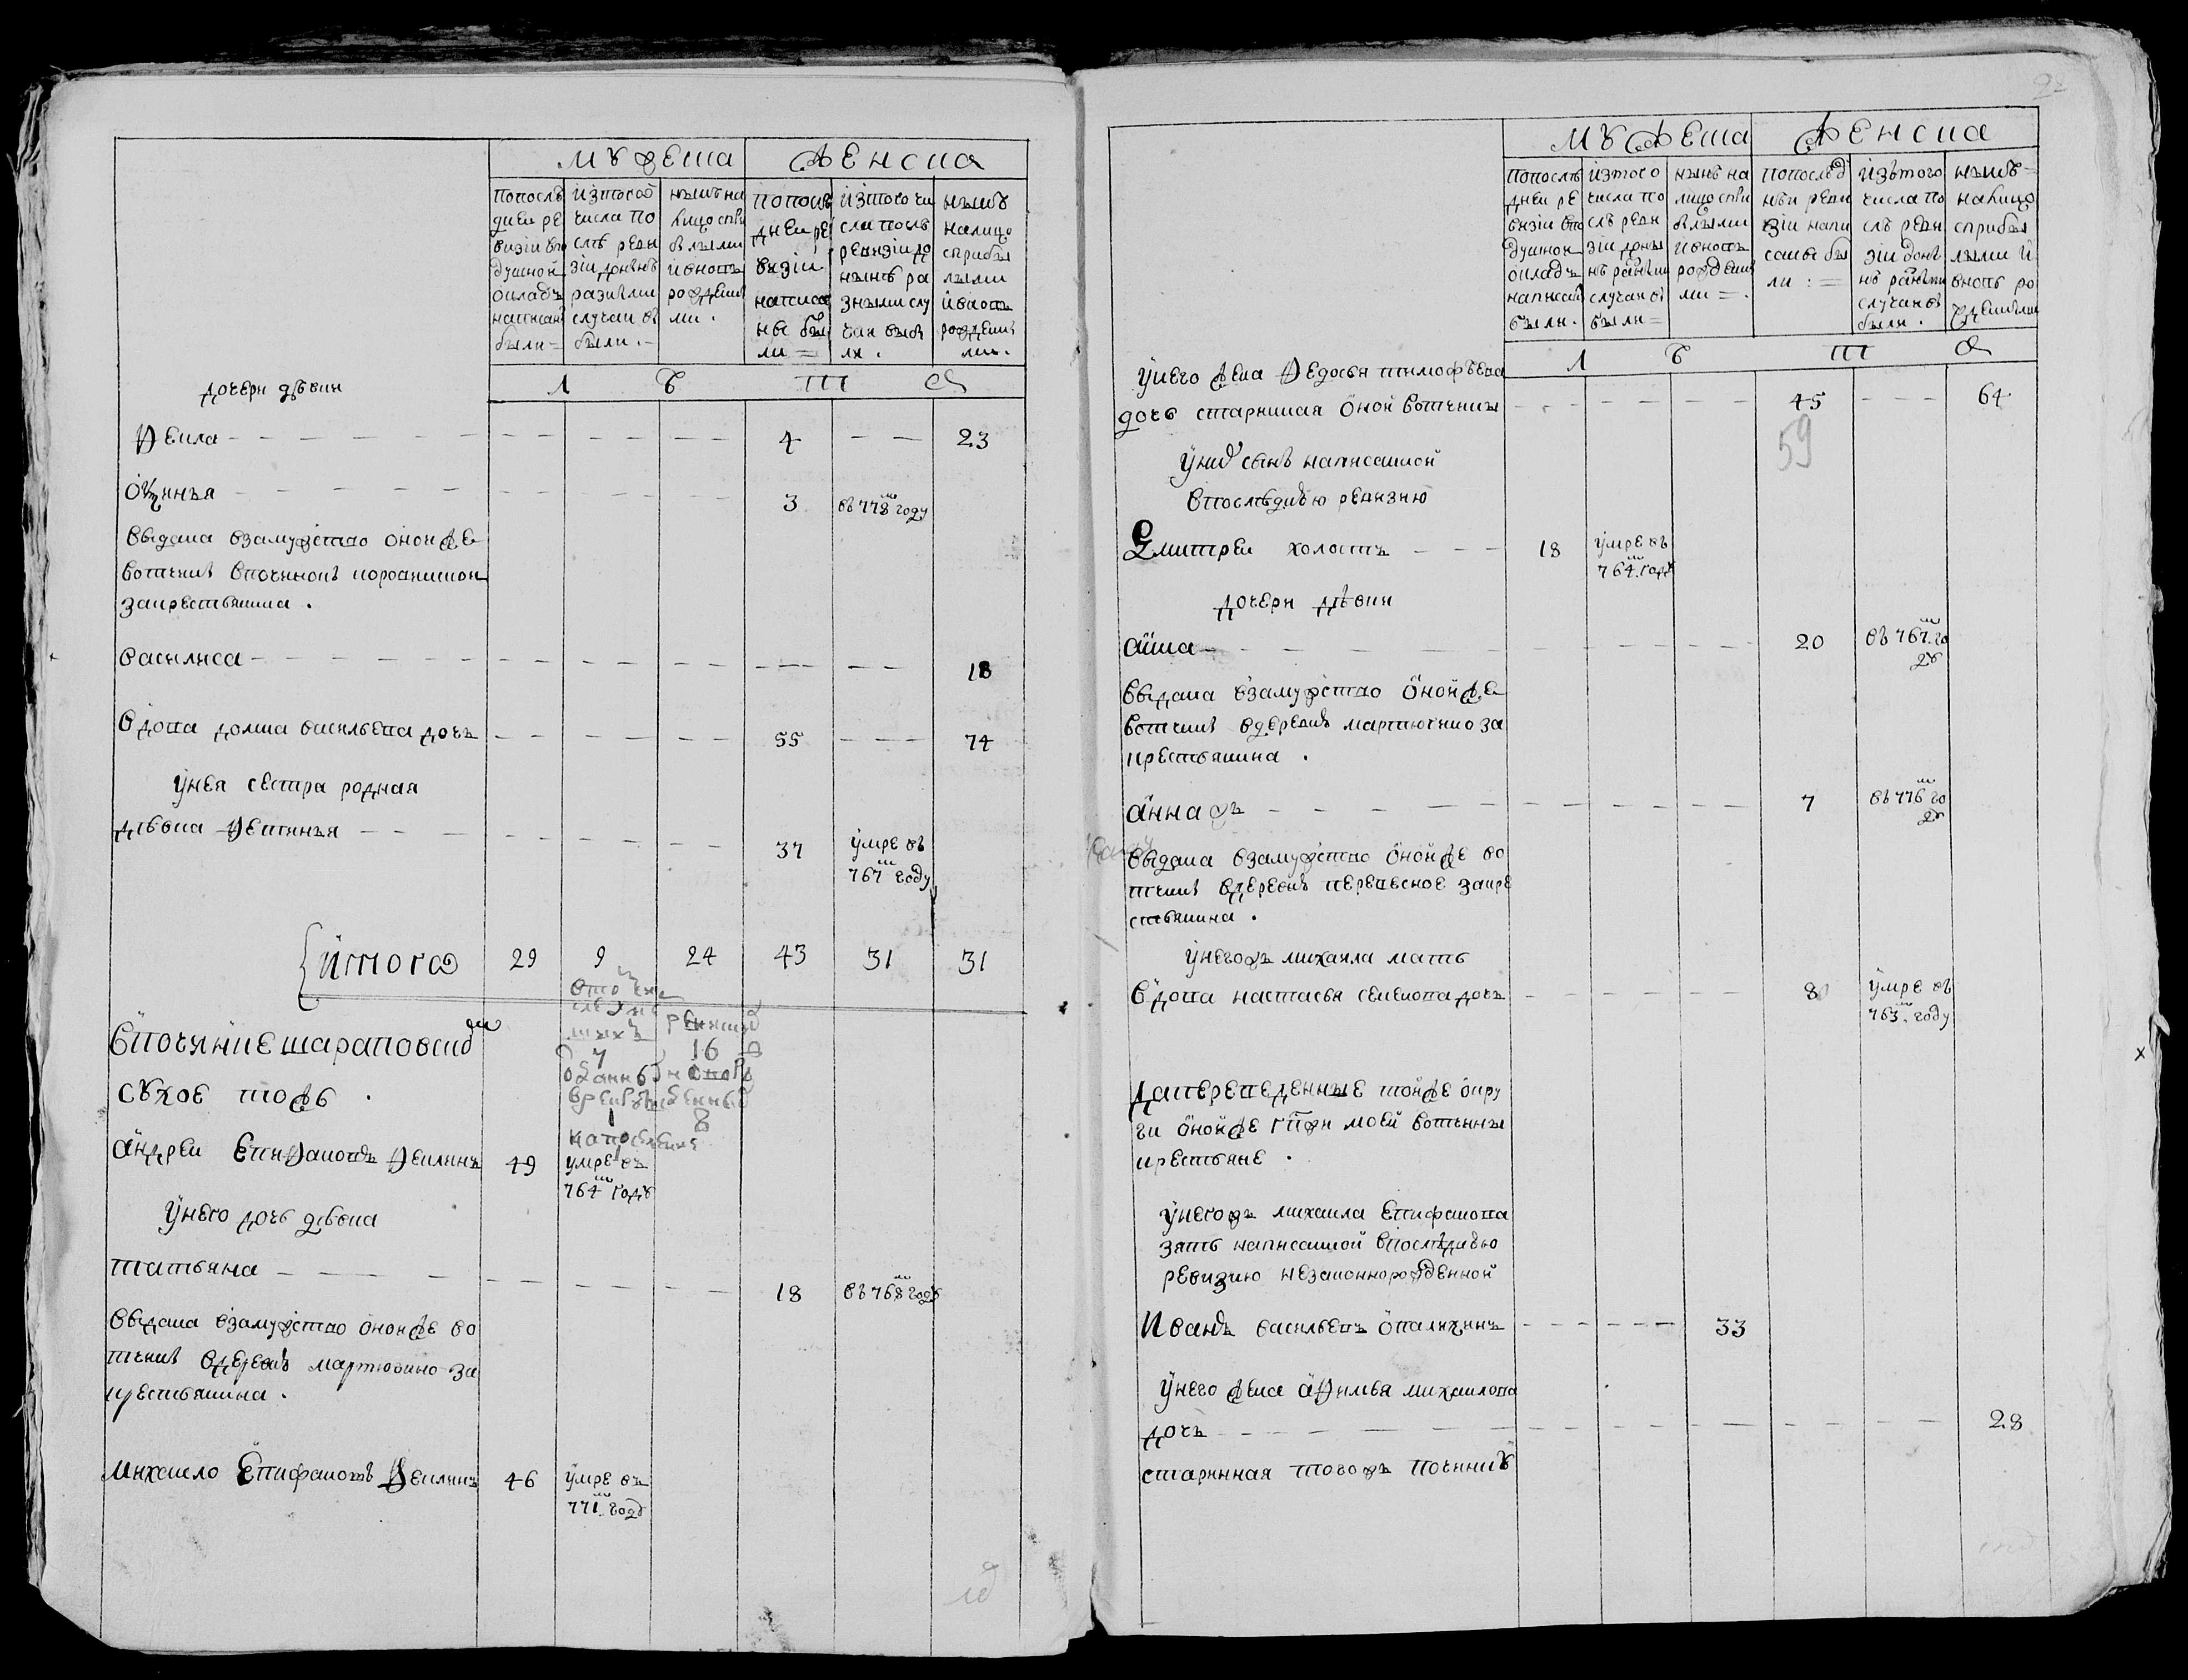 мужеска
женска
По послѣ
дней ре
визіи въ по
душной
окладъ
написаны
были =
ис того
числа по
слѣ реви
зіи до нынѣ
разными
случаи вы
были . -
нынѣ на
лицо с при
былыми
и вновь
рожденны
ми .
по послѣ
дней ре
визіи
написа
ны бы
ли =
из того чи
сла послѣ
ревизіи до
нынѣ ра
зными слу
чаи выбы
ли .
нынѣ
налицо
с прибы
лыми
и вновь
рожденны
ми .
дочери дѣвки
Л Ѣ Т А
Фекла - - - 4 - - 23
Выдана взамужство оной же
вотчинѣ
за крестьянина .
3 въ 778м году
василиса - - - 18
Вдова домна васильева дочь - - - 55 - - - 74
у нея сестра родная
дѣвка Фетинья - - - 37 умре въ
767м году
итого 29 9 24 43 31 31
в починке шараповском
сухое тожъ .
7 16
8
андреи Епифановъ Феклинъ 49 умре въ
764м году
у него дочь дѣвка
татьяна - - - 18 въ 768м году
Выдана взамужство оной же во
тчинѣ в деревнѣ мартюшино за
крестьянина .
Михаило Епифановъ Феклинъ 46 умре въ
771м году
мужеска
женска
По послѣ
дней ре
визіи въ по
душной
окладъ
написаны
были .
из того
числа по
слѣ реви
зіи до ны
нѣ разными
случаи вы
были =
нынѣ на
лицо с при
былыми
и вновь
рожденны
ми = .
по послѣд
ней реви
зіи напи
саны бы
ли : =
из того
числа по
слѣ реви
зіи до ны
нѣ разными
случаи вы
были .
нынѣ =
налицо
с прибы
лыми и
вновь ро
жденными
Л Ѣ Т А
у него жена Федосья тимофѣева
дочь старинная оной вотчины - - - 45 - - - 64
59
у них сынъ написанной
в послѣднюю ревизию
Дмитреи холостъ - - - 18 умре въ
764м году
дочери дѣвки
анна - - - 20 въ 767м го
ду
Выдана взамужство оной же
вотчинѣ в деревнѣ мартюшино за
крестьянина .
анна ж - - - 7 въ 776м го
ду
Выдана взамужство оной же во
тчинѣ в деревнѣ перевесное за кре
стьянина .
у него ж михаила мать
Вдова настасья семенова дочь - - - 80 умре въ
763м году
Да переведенные той же окру
ги оной же гпжи моей вотчины
крестьяне .
у него ж михаила Епифанова
зять написанной в послѣднюю
ревизию незаконнорожденной
Иванъ васильевъ опалихинъ - - - 33
у него жена афимья михаилова
дочь - - - 28
старинная того ж починку